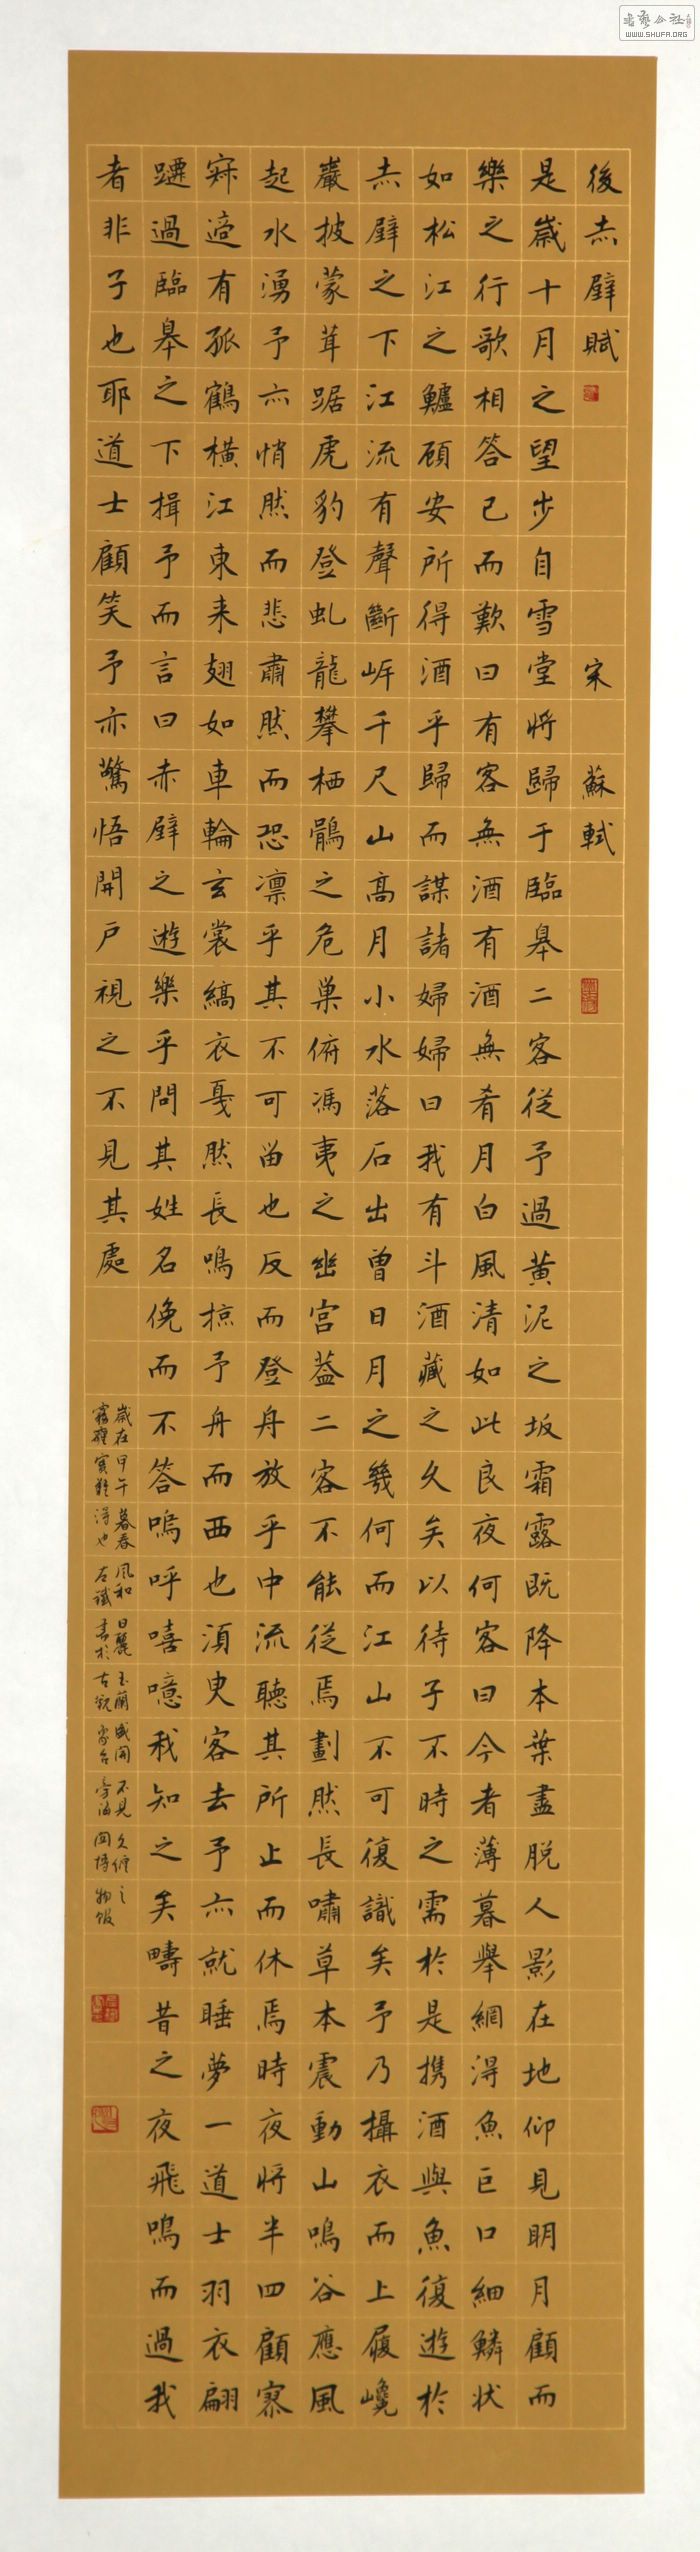 後赤壁賦 宋 蘇軾
是歲十月之望步自雪堂將歸于臨皋二客從予過黃泥之坂霜露既降本葉盡脫人影在地仰見明月顧而
樂之行歌相答已而歎曰有客無酒有酒無肴月白風清如此良夜何客曰今者薄暮舉網得魚巨口細鱗狀
如松江之鱸顧安所得酒乎歸而謀諸婦婦曰我有斗酒藏之久矣以待子不時之需於是携酒與魚復遊於
赤壁之下江流有聲斷岸千尺山高月小水落石出曾日月之幾何而江山不可復識矣予乃攝衣而上履巉
巖披蒙茸踞虎豹登虬龍攀栖鶻之危巢俯馮夷之幽宮蓋二客不能從焉劃然長嘯草本震動山鳴谷應風
起水湧予亦悄然而悲肅然而恐凛乎其不可留也反而登舟放乎中流聽其所止而休焉時夜將半四顧寂
寥適有孤鶴橫江東来翅如車輪玄裳縞衣戛然長鳴掠予舟而西也須臾客去予亦就睡夢一道士羽衣翩
躚過臨皋之下揖予而言曰赤壁之遊樂乎問其姓名俛而不答嗚呼噫嘻我知之矣疇昔之夜飛鳴而過我
者非子也耶道士顧笑予亦驚悟開戶視之不見其處
歲在甲午暮春風和日麗玉蘭盛開不見久繼之
霧霾實難得也 書於古觀象台旁海関博物館
WWW.SHUFA.ORG